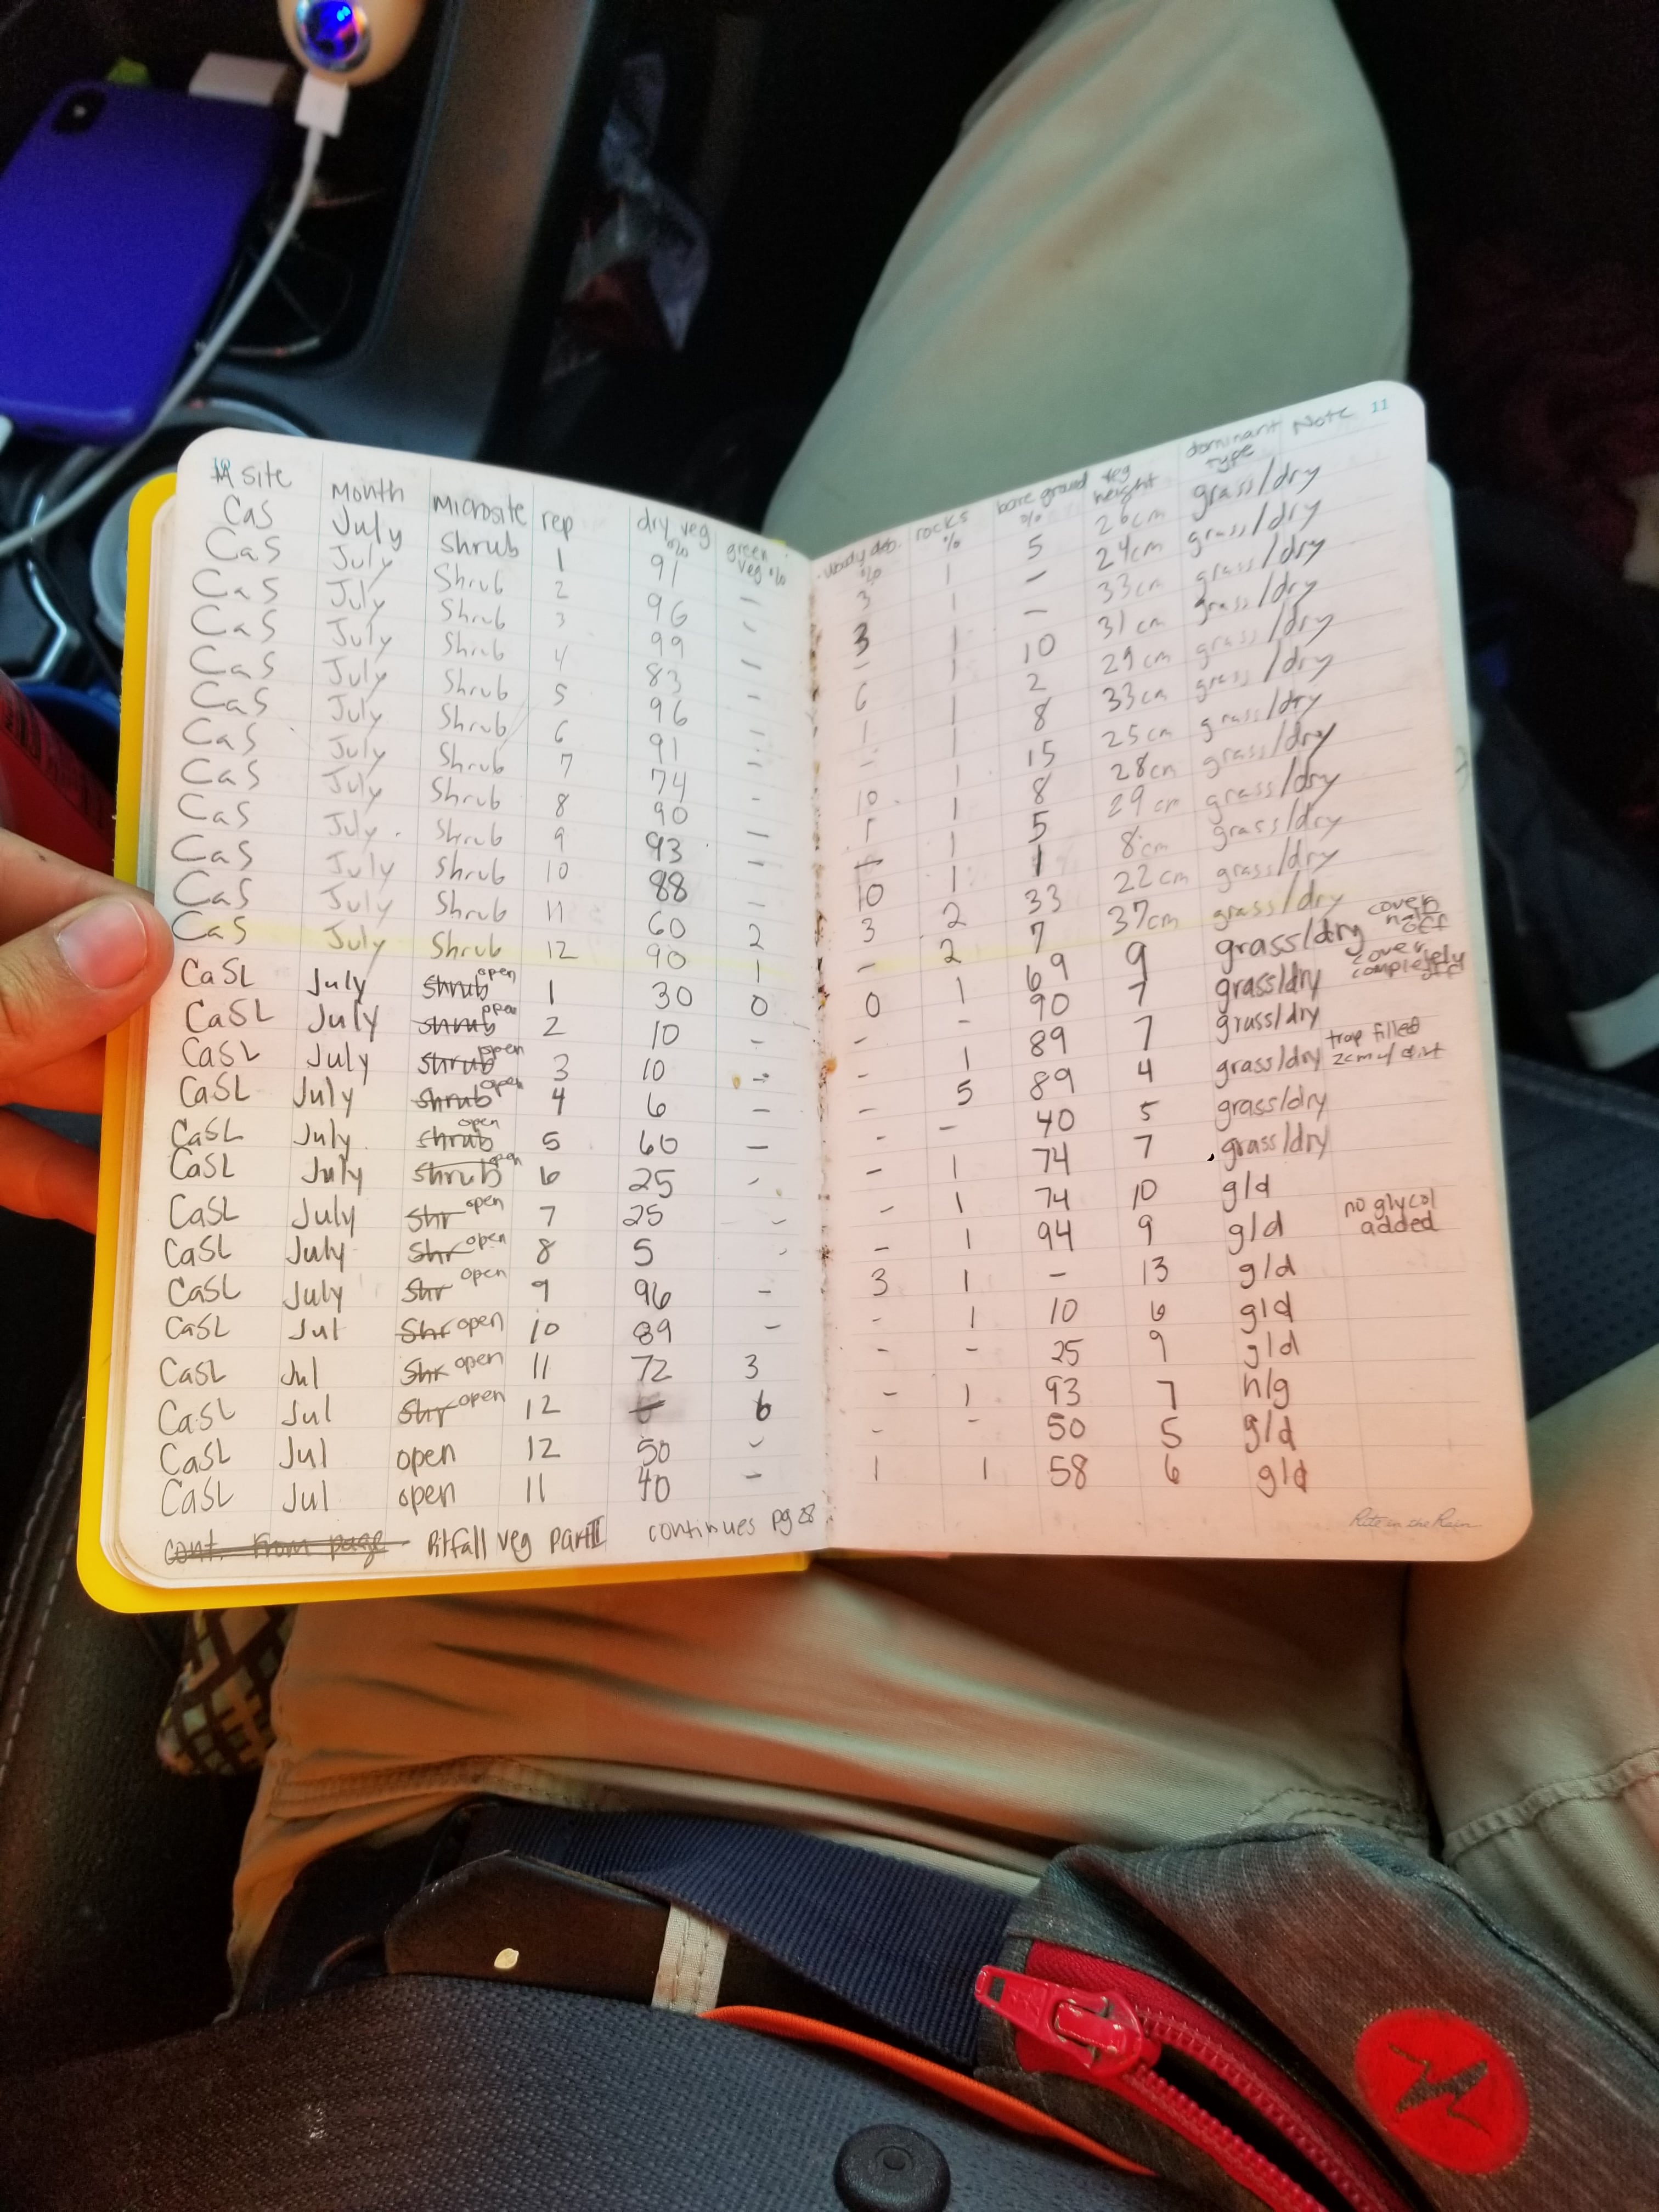 site Month Microsite rep dry veg % green veg %
CaS July Shrub 1 91 -
CaS July Shrub 2 96 -
CaS July Shrub 3 99 -
CaS July Shrub 4 83 -
CaS July Shrub 5 96 -
CaS July Shrub 6 91 -
CaS July Shrub 7 74 -
CaS July Shrub 8 90 -
CaS July Shrub 9 93 -
CaS July Shrub 10 88 -
CaS July Shrub 11 60 2
CaS July Shrub 12 90 1
CaSL July shrub open 1 30 0
CaSL July shrub open 2 10 -
CaSL July shrub open 3 10 -
CaSL July shrub open 4 6 -
CaSL July shrub open 5 60 -
CaSL July shrub open 6 25 -
CaSL July Shr open 7 25 -
CaSL July Shr open 8 5 -
CaSL July Shr open 9 96 -
CaSL Jul Shr open 10 89 -
CaSL Jul Shr open 11 72 3
CaSL Jul Shr open 12 6
CaSL Jul open 12 50 -
CaSL Jul open 11 40 -
cont. from page Pitfall veg Part II continues pg 28
11
woody deb. % rocks % bare ground % veg height dominant type Note
3 1 5 26cm grass/dry
3 1 - 24cm grass/dry
- 1 - 33cm grass/dry
6 1 10 31cm grass/dry
1 1 2 29cm grass/dry
- 1 8 33cm grass/dry
10 1 15 25cm grass/dry
1 1 8 28cm grass/dry
1 5 29cm grass/dry
10 1 1 8cm grass/dry
3 2 33 22cm grass/dry
- 2 7 37cm grass/dry
0 1 69 9 grass/dry cover half off
- - 90 7 grass/dry cover completely off
- 1 89 7 grass/dry
- 5 89 4 grass/dry trap filled 2cm w/ dirt
- - 40 5 grass/dry
- 1 74 7 grass/dry
- 1 74 10 g/d
- 1 94 9 g/d no glycol added
3 1 - 13 g/d
- 1 10 6 g/d
- - 25 9 g/d
- 1 93 7 h/g
- - 50 5 g/d
1 1 58 6 g/d
Rite in the Rain